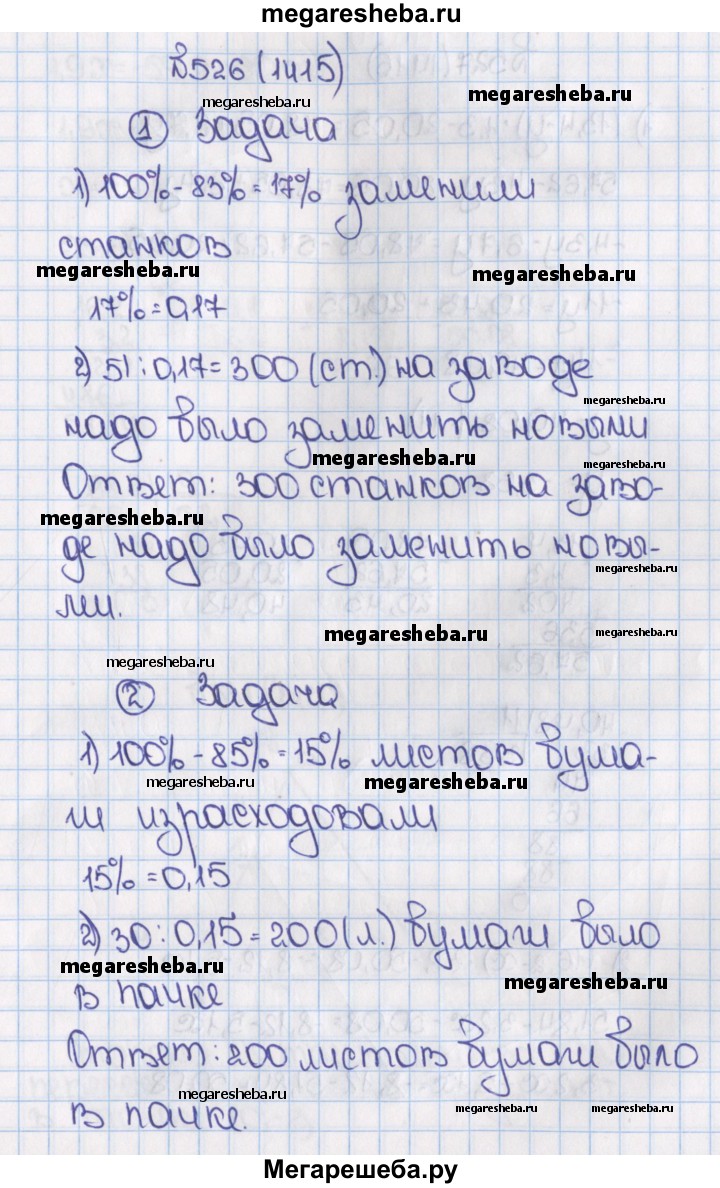 megaresheba.ru
№526 (1415)
megaresheba.ru
megaresheba.ru
1 Задача
1) 100% - 83% = 17% заменили
станков
megaresheba.ru
megaresheba.ru
17% = 0,17
2) 51 : 0,17 = 300 (ст.) на заводе
megaresheba.ru
надо было заменить новыми
megaresheba.ru
megaresheba.ru
Ответ: 300 станков на заво-
megaresheba.ru
де надо было заменить новы-
megaresheba.ru
ми.
megaresheba.ru
megaresheba.ru
megaresheba.ru
2 Задача
1) 100% - 85% = 15% листов бума-
megaresheba.ru
megaresheba.ru
ги израсходовали
15% = 0,15
2) 30 : 0,15 = 200 (л.) бумаги было
megaresheba.ru
megaresheba.ru
в пачке
Ответ: 200 листов бумаги было
megaresheba.ru
в пачке.
megaresheba.ru
megaresheba.ru
Мегарешеба.ру